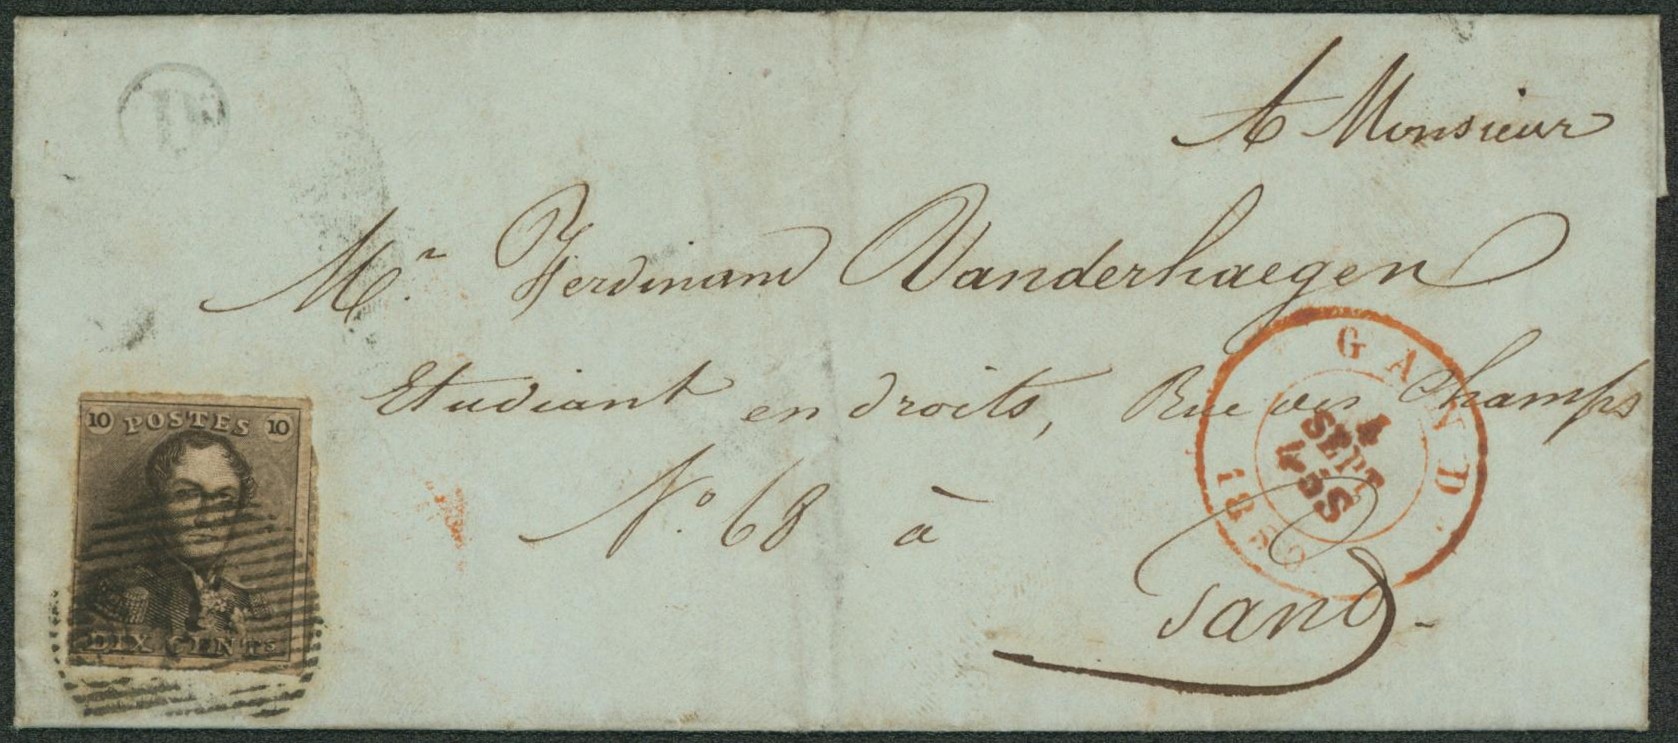 D
A Monsieur
Mr. Ferdinand Vanderhaegen
Etudiant en droits, Rue des Champs
N.o 68 à
Gand -
10 POSTES 10
DIX CENTS
GAND
4
SEPT
18